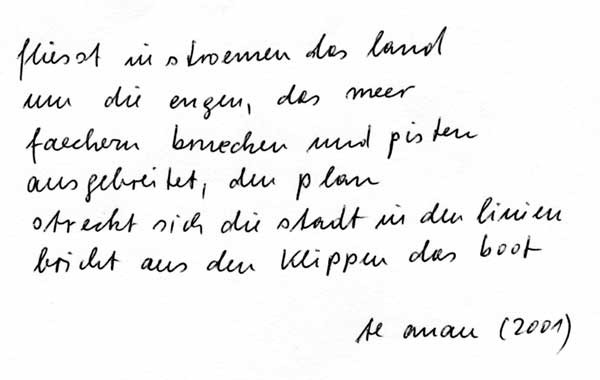 fliesst in stroemen das land
um die engen, das meer
faechern bruecken und pisten
ausgebreitet, den plan
streckt sich die stadt in den linien
bricht aus den klippen das boot
te anau (2001)